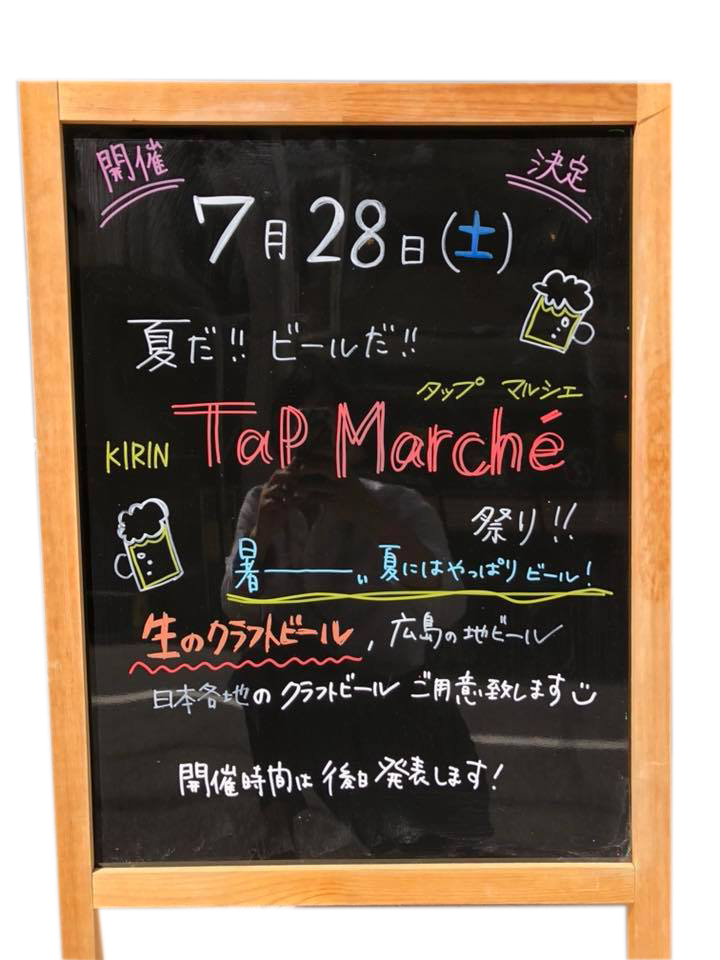 開催 決定
7月28日(土)
夏だ!! ビールだ!!
タップ マルシェ
KIRIN Tap Marché
祭り!!
暑———〃 夏にはやっぱりビール!
生のクラフトビール, 広島の地ビール
日本各地のクラフトビール ご用意致します
開催時間は後日発表します!